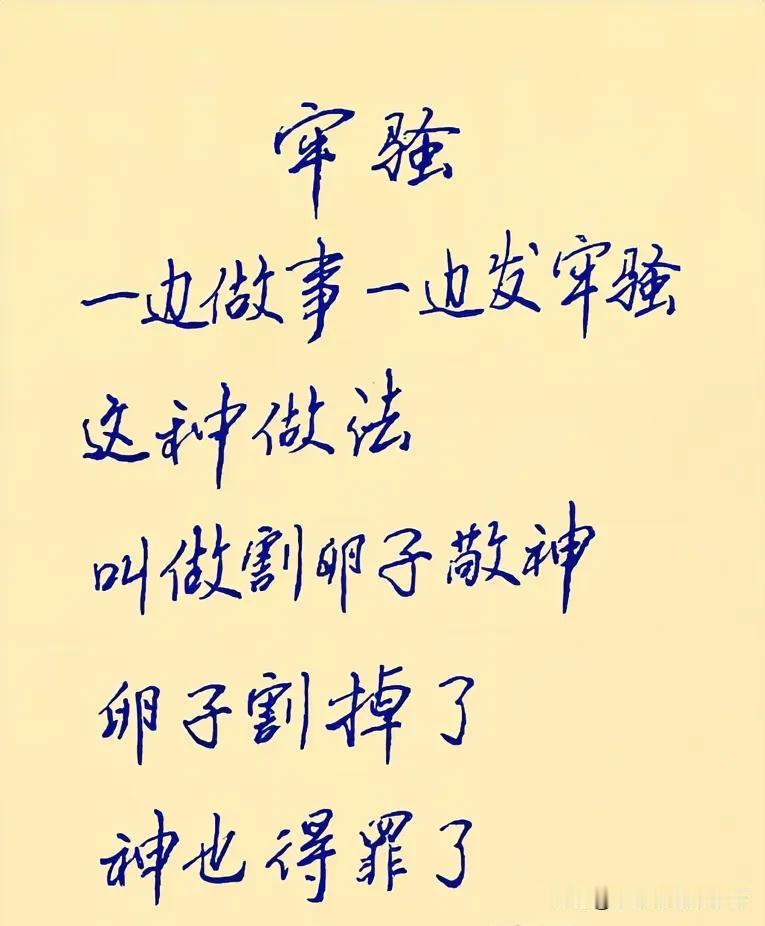 牢骚
一边做事一边发牢骚
这种做法
叫做割卵子敬神
卵子割掉了
神也得罪了